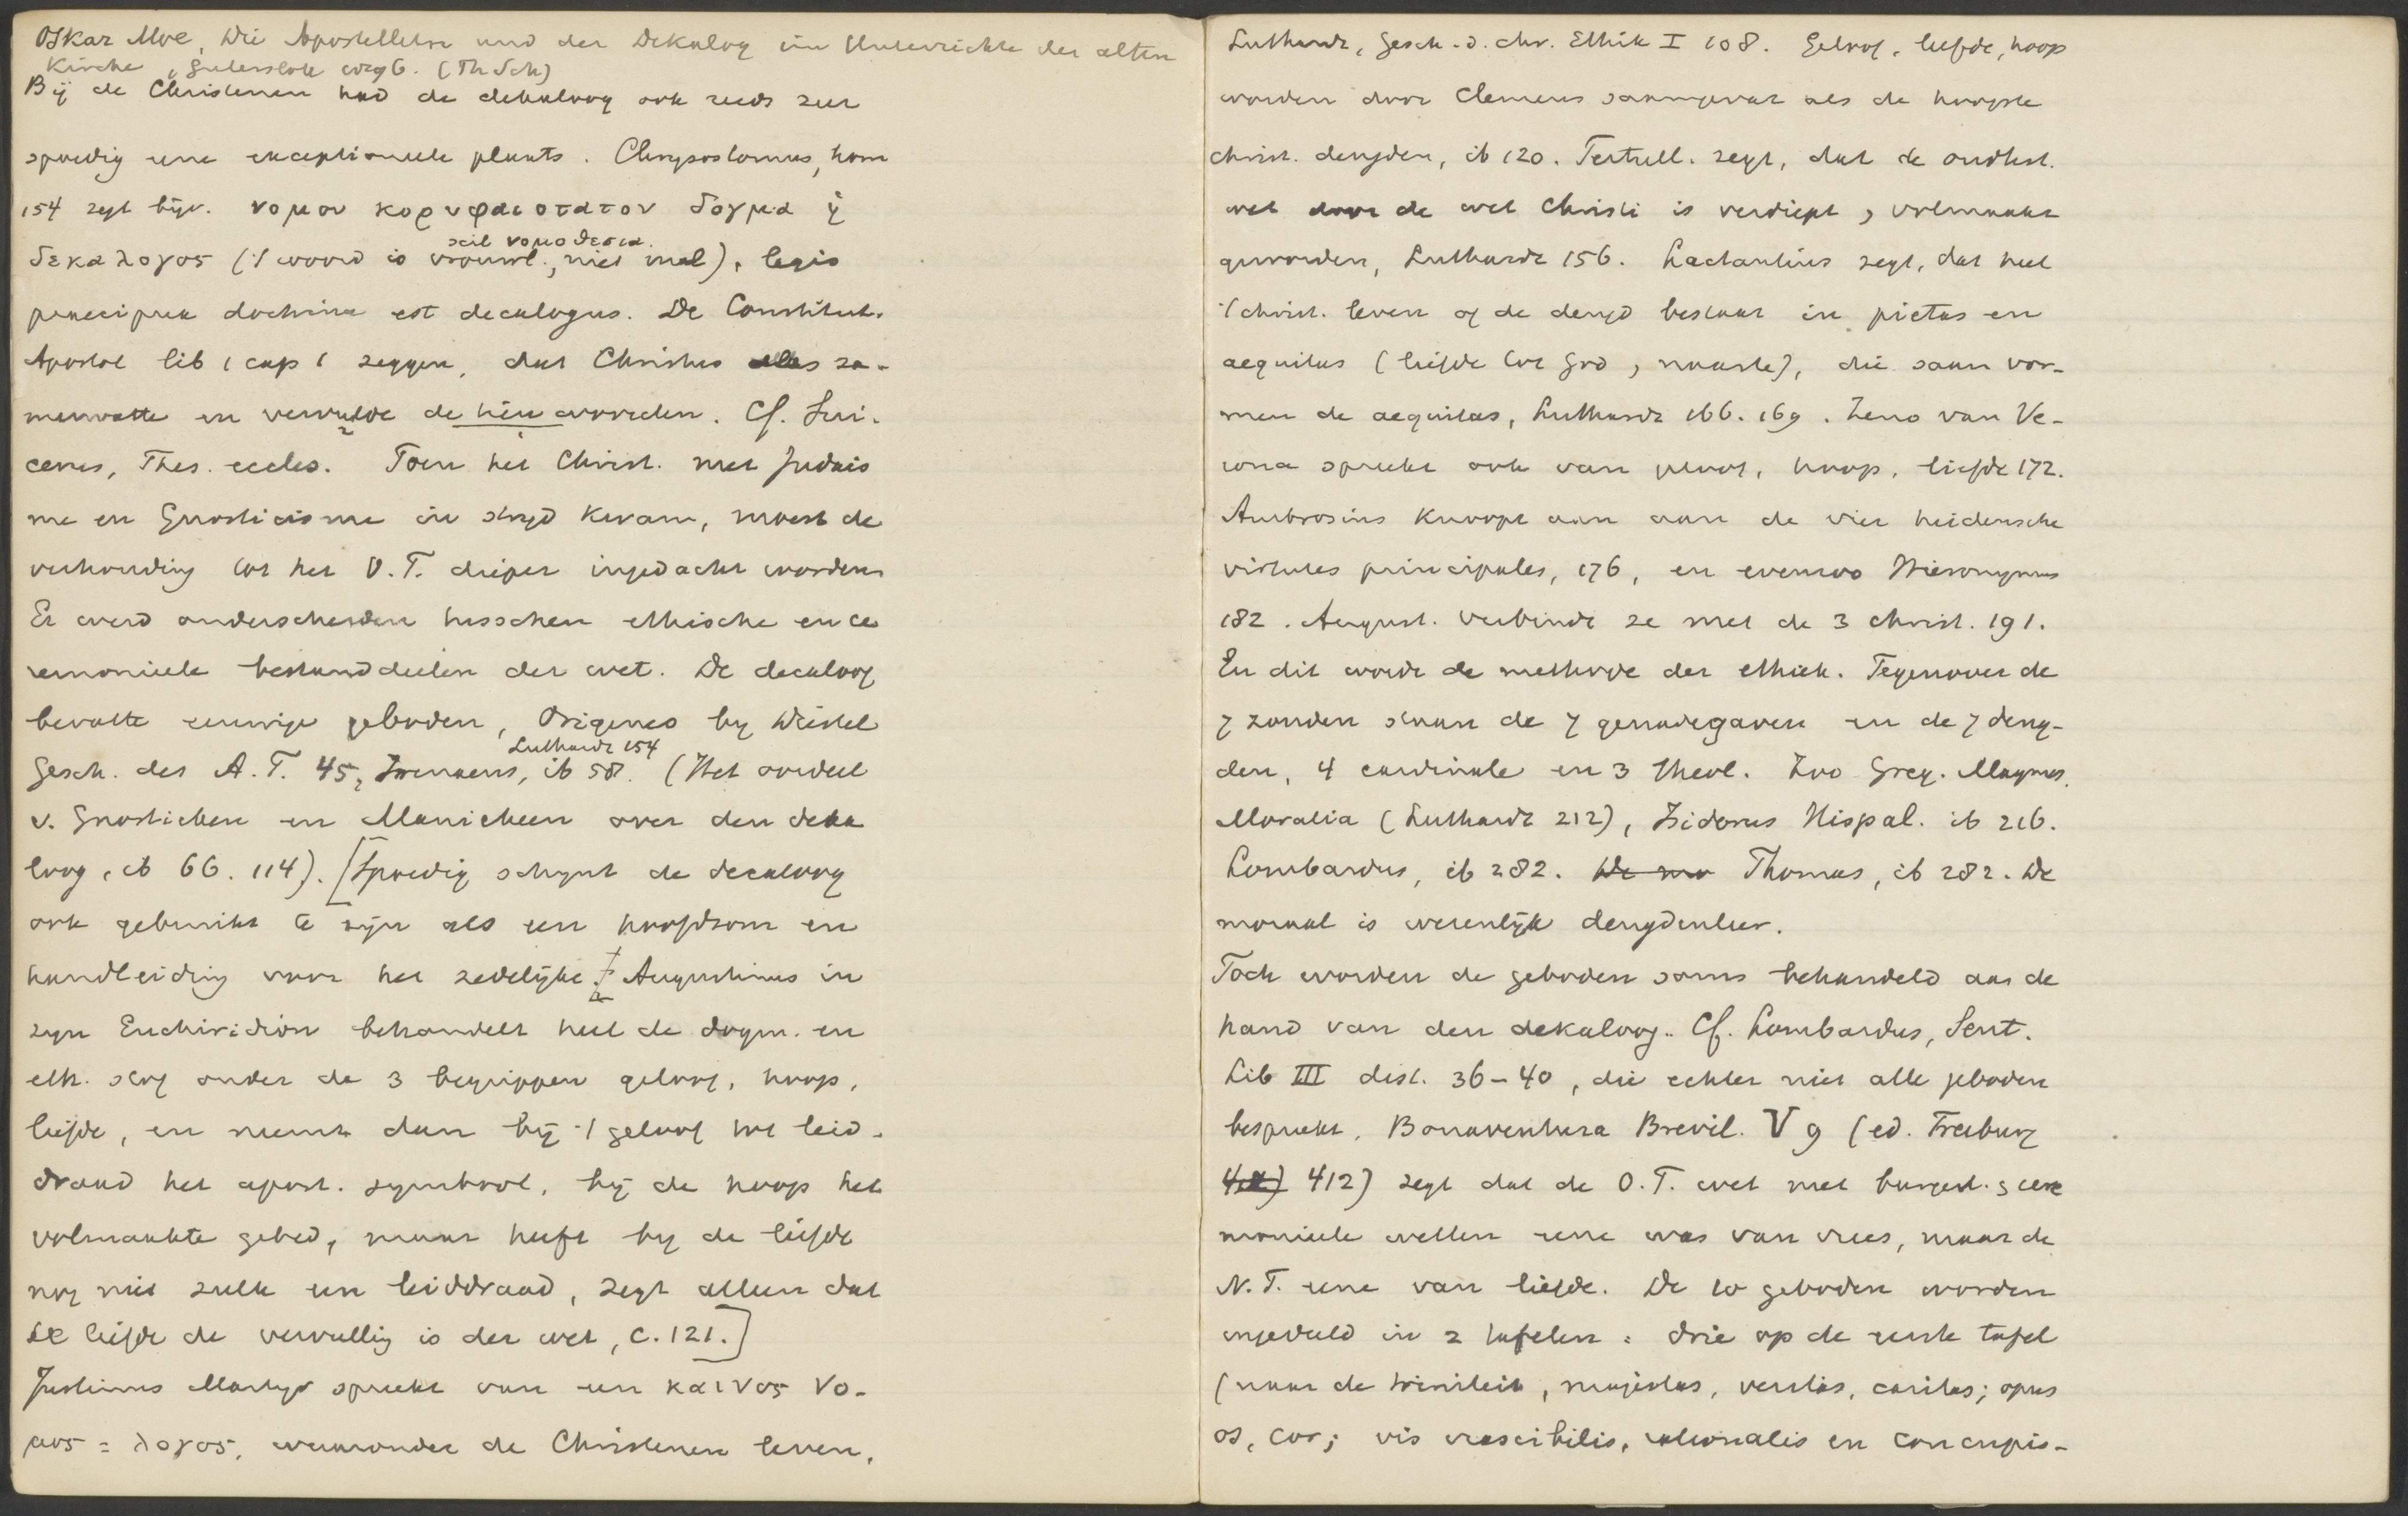 Oskar Moe, Die Apostellehre und der Dekalog im Unterrichte der alten
Kirche, Gütersloh 1896. (Th Sch)
Bij de Christenen had de dekaloog ook reeds zeer
spoedig eene exceptioneele plaats. Chrysostomus, hom
154 zegt bijv. νομου κορυφαιοτατον δογμα ἡ
scil νομοθεσια.
δεκαλογος ('t woord is vrouwl., niet mnl), legis
praecipua doctrina est decalogus. De Constitut.
Apostol lib 1 cap 1 zeggen, dat Christus alles sa-
menvatte en vervulde de tien woorden. Cf. Sui-
cerus, Thes. eccles. Toen het Christ. met Judais
me en Gnosticisme in strijd kwam, moest de
verhouding tot het O.T. dieper ingedacht worden
Er werd onderscheiden tusschen ethische en ce
remonieele bestanddeelen der wet. De decaloog
bevatte eeuwige geboden, Origenes by Diestel
Luthardt 154
Gesch. des A.T. 45, Irenaeus, ib 58. (Het oordeel
v. Gnostieken en Manicheen over den deka
loog, ib 66. 114). [Spoedig schynt de decaloog
ook gebruikt te zijn als een hoofdsom en
handleiding voor het zedelijke. Augustinus in
zyn Enchiridion behandelt heel de dogm. en
eth. stof onder de 3 begrippen geloof, hoop,
liefde, en neemt dan bij 't geloof tot leid-
draad het apost. symbool, bij de hoop het
volmaakte gebed, maar heeft by de liefde
nog niet zulk een leiddraad, zegt alleen dat
de liefde de vervulling is der wet, c. 121.]
Justinus Martyr spreekt van een καινος νο-
μος = λογος, waaronder de Christenen leven,
Luthardt, Gesch. d. chr. Ethik I 108. Geloof, liefde, hoop
worden door Clemens saamgevat als de hoogste
christ. deugden, ib 120. Tertull. zegt, dat de oudtest.
wet door de wet Christi is verdiept, volmaakt
geworden, Luthardt 156. Lactantius zegt, dat heel
't christ. leven of de deugd bestaat in pietas en
aequitas (liefde tot God, naaste), die saam vor-
men de aequitas, Luthardt 166. 169. Zeno van Ve-
rona spreekt ook van geloof, hoop, liefde 172.
Ambrosius knoopt aan aan de vier heidensche
virtutes principales, 176, en evenzoo Hieronymus
182. August. verbindt ze met de 3 christ. 191.
En dit wordt de methode der ethiek. Tegenover de
7 zonden staan de 7 genadegaven en de 7 deug-
den, 4 cardinale en 3 theol. Zoo Greg. Magnus,
Moralia (Luthardt 212), Isidorus Hispal. ib 216.
Lombardus, ib 282. Thomas, ib 282. De
moraal is wezenlijk deugdenleer.
Toch worden de geboden soms behandeld aan de
hand van den dekaloog. Cf. Lombardus, Sent.
Lib III dist. 36-40, die echter niet alle geboden
bespreekt, Bonaventura Brevil. V 9 (ed. Freiburg
412) zegt dat de O.T. wet met burgerl. cere
monieele wetten eene was van vrees, maar de
N.T. eene van liefde. De 10 geboden worden
ingedeeld in 2 tafelen: drie op de eerste tafel
(naar de triniteit, majestas, veritas, caritas; opus
os, cor; vis irascibilis, rationalis en concupis-